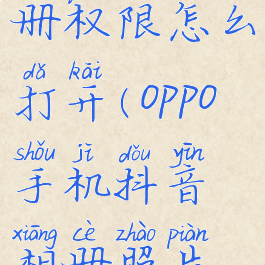 册权限怎么
dǎ kāi
打开(OPPO
shǒu jī dǒu yīn
手机抖音
xiāng cè zhào piàn
相册照片